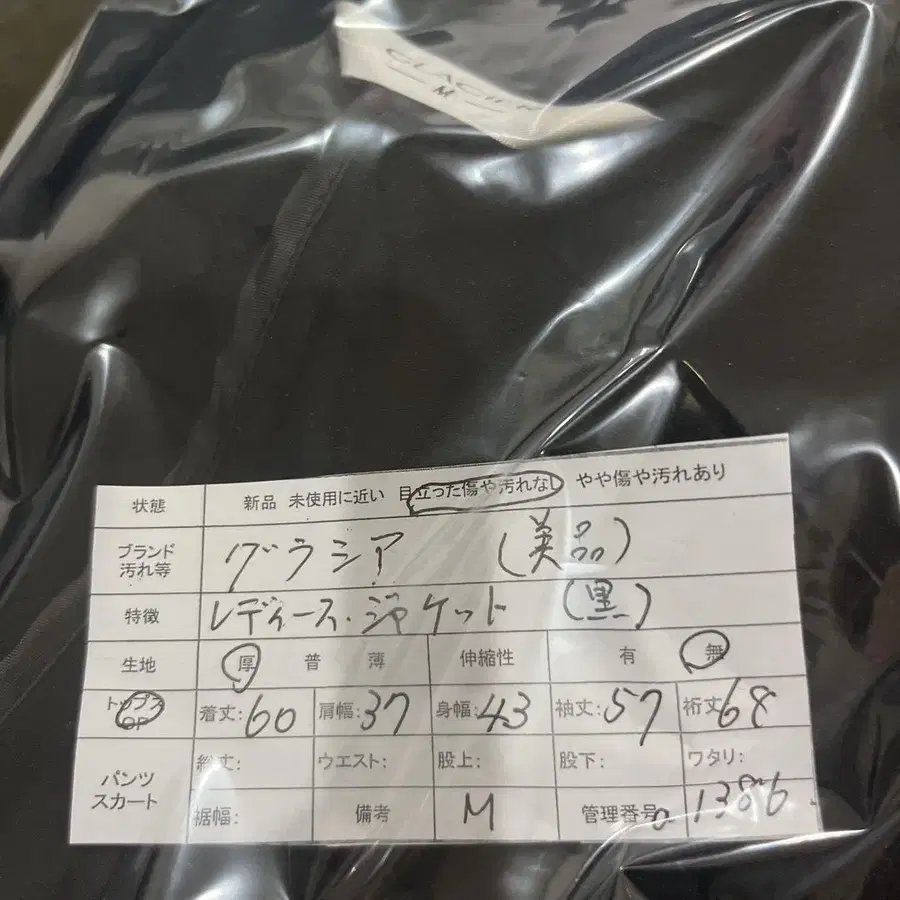 GLACIER
状態 新品 未使用に近い 目立った傷や汚れなし やや傷や汚れあり
ブランド 汚れ等 グラシア (美品)
特徴 レディース・ジャケット (黒)
生地 厚 普 薄 伸縮性 有 無
トップス OP 着丈:60 肩幅:37 身幅:43 袖丈:57 裄丈68
パンツ スカート 総丈: ウエスト: 股上: 股下: ワタリ:
裾幅: 備考 M 管理番号 a1386